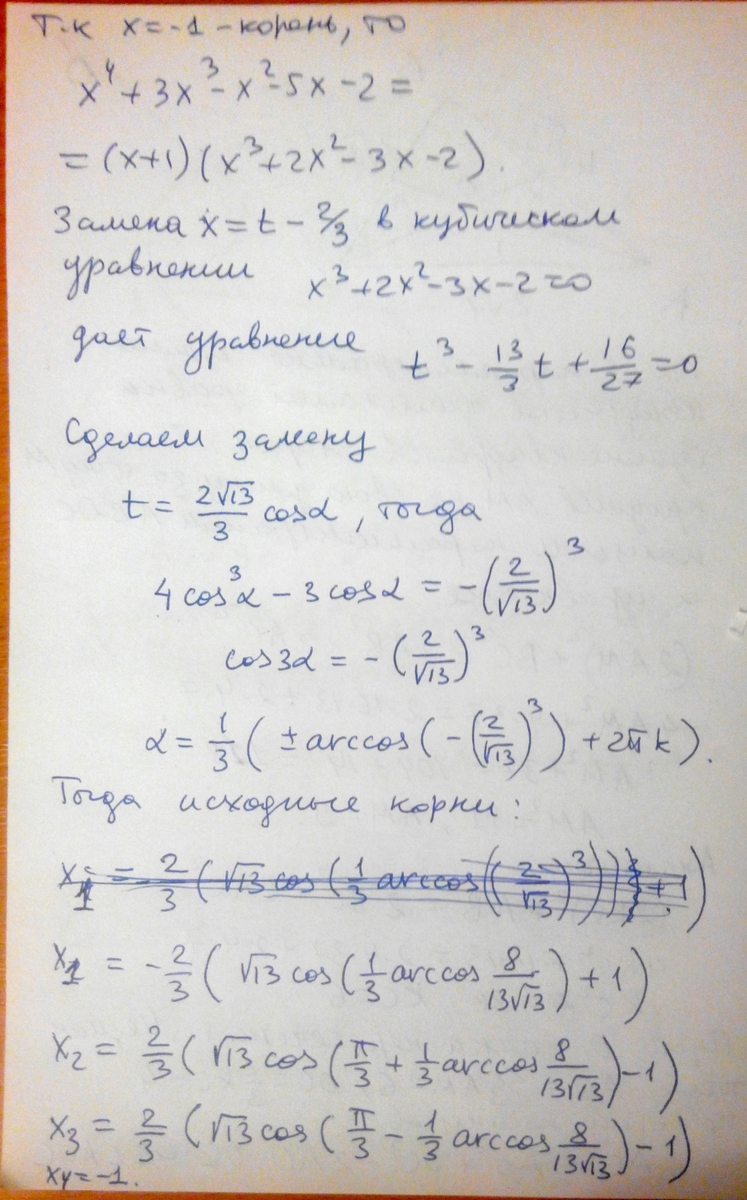 Т.к x = -1 - корень, то
x⁴ + 3x³ - x² - 5x - 2 =
= (x+1)(x³ + 2x² - 3x - 2).
Замена x = t - 2/3 в кубическом
уравнении x³ + 2x² - 3x - 2 = 0
дает уравнение t³ - 13/3 t + 16/27 = 0
Сделаем замену
t = 2√13/3 cosα, тогда
4cos³α - 3cosα = -(2/√13)³
cos3α = -(2/√13)³
α = 1/3 (± arccos(-(2/√13)³) + 2πk).
Тогда исходные корни:
x₁ = 2/3 (√13 cos(1/3 arccos(2/√13)³)) + 1)
x₁ = -2/3 (√13 cos(1/3 arccos 8/13√13) + 1)
x₂ = 2/3 (√13 cos(π/3 + 1/3 arccos 8/13√13) - 1)
x₃ = 2/3 (√13 cos(π/3 - 1/3 arccos 8/13√13) - 1)
x₄ = -1.